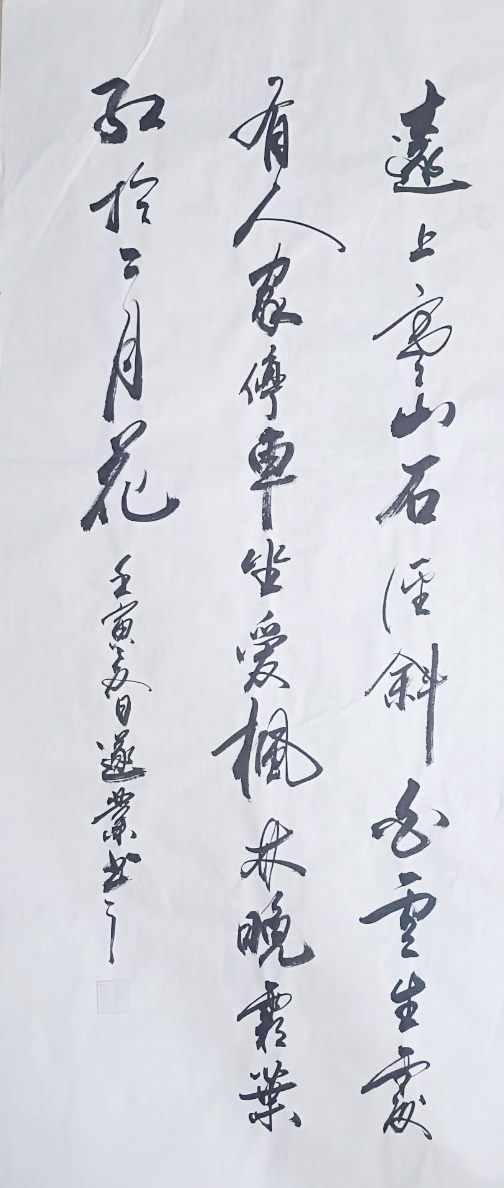 遠上寒山石徑斜白雲生處
有人家停車坐愛楓林晚霜葉
紅於二月花
壬寅夏日遂業书